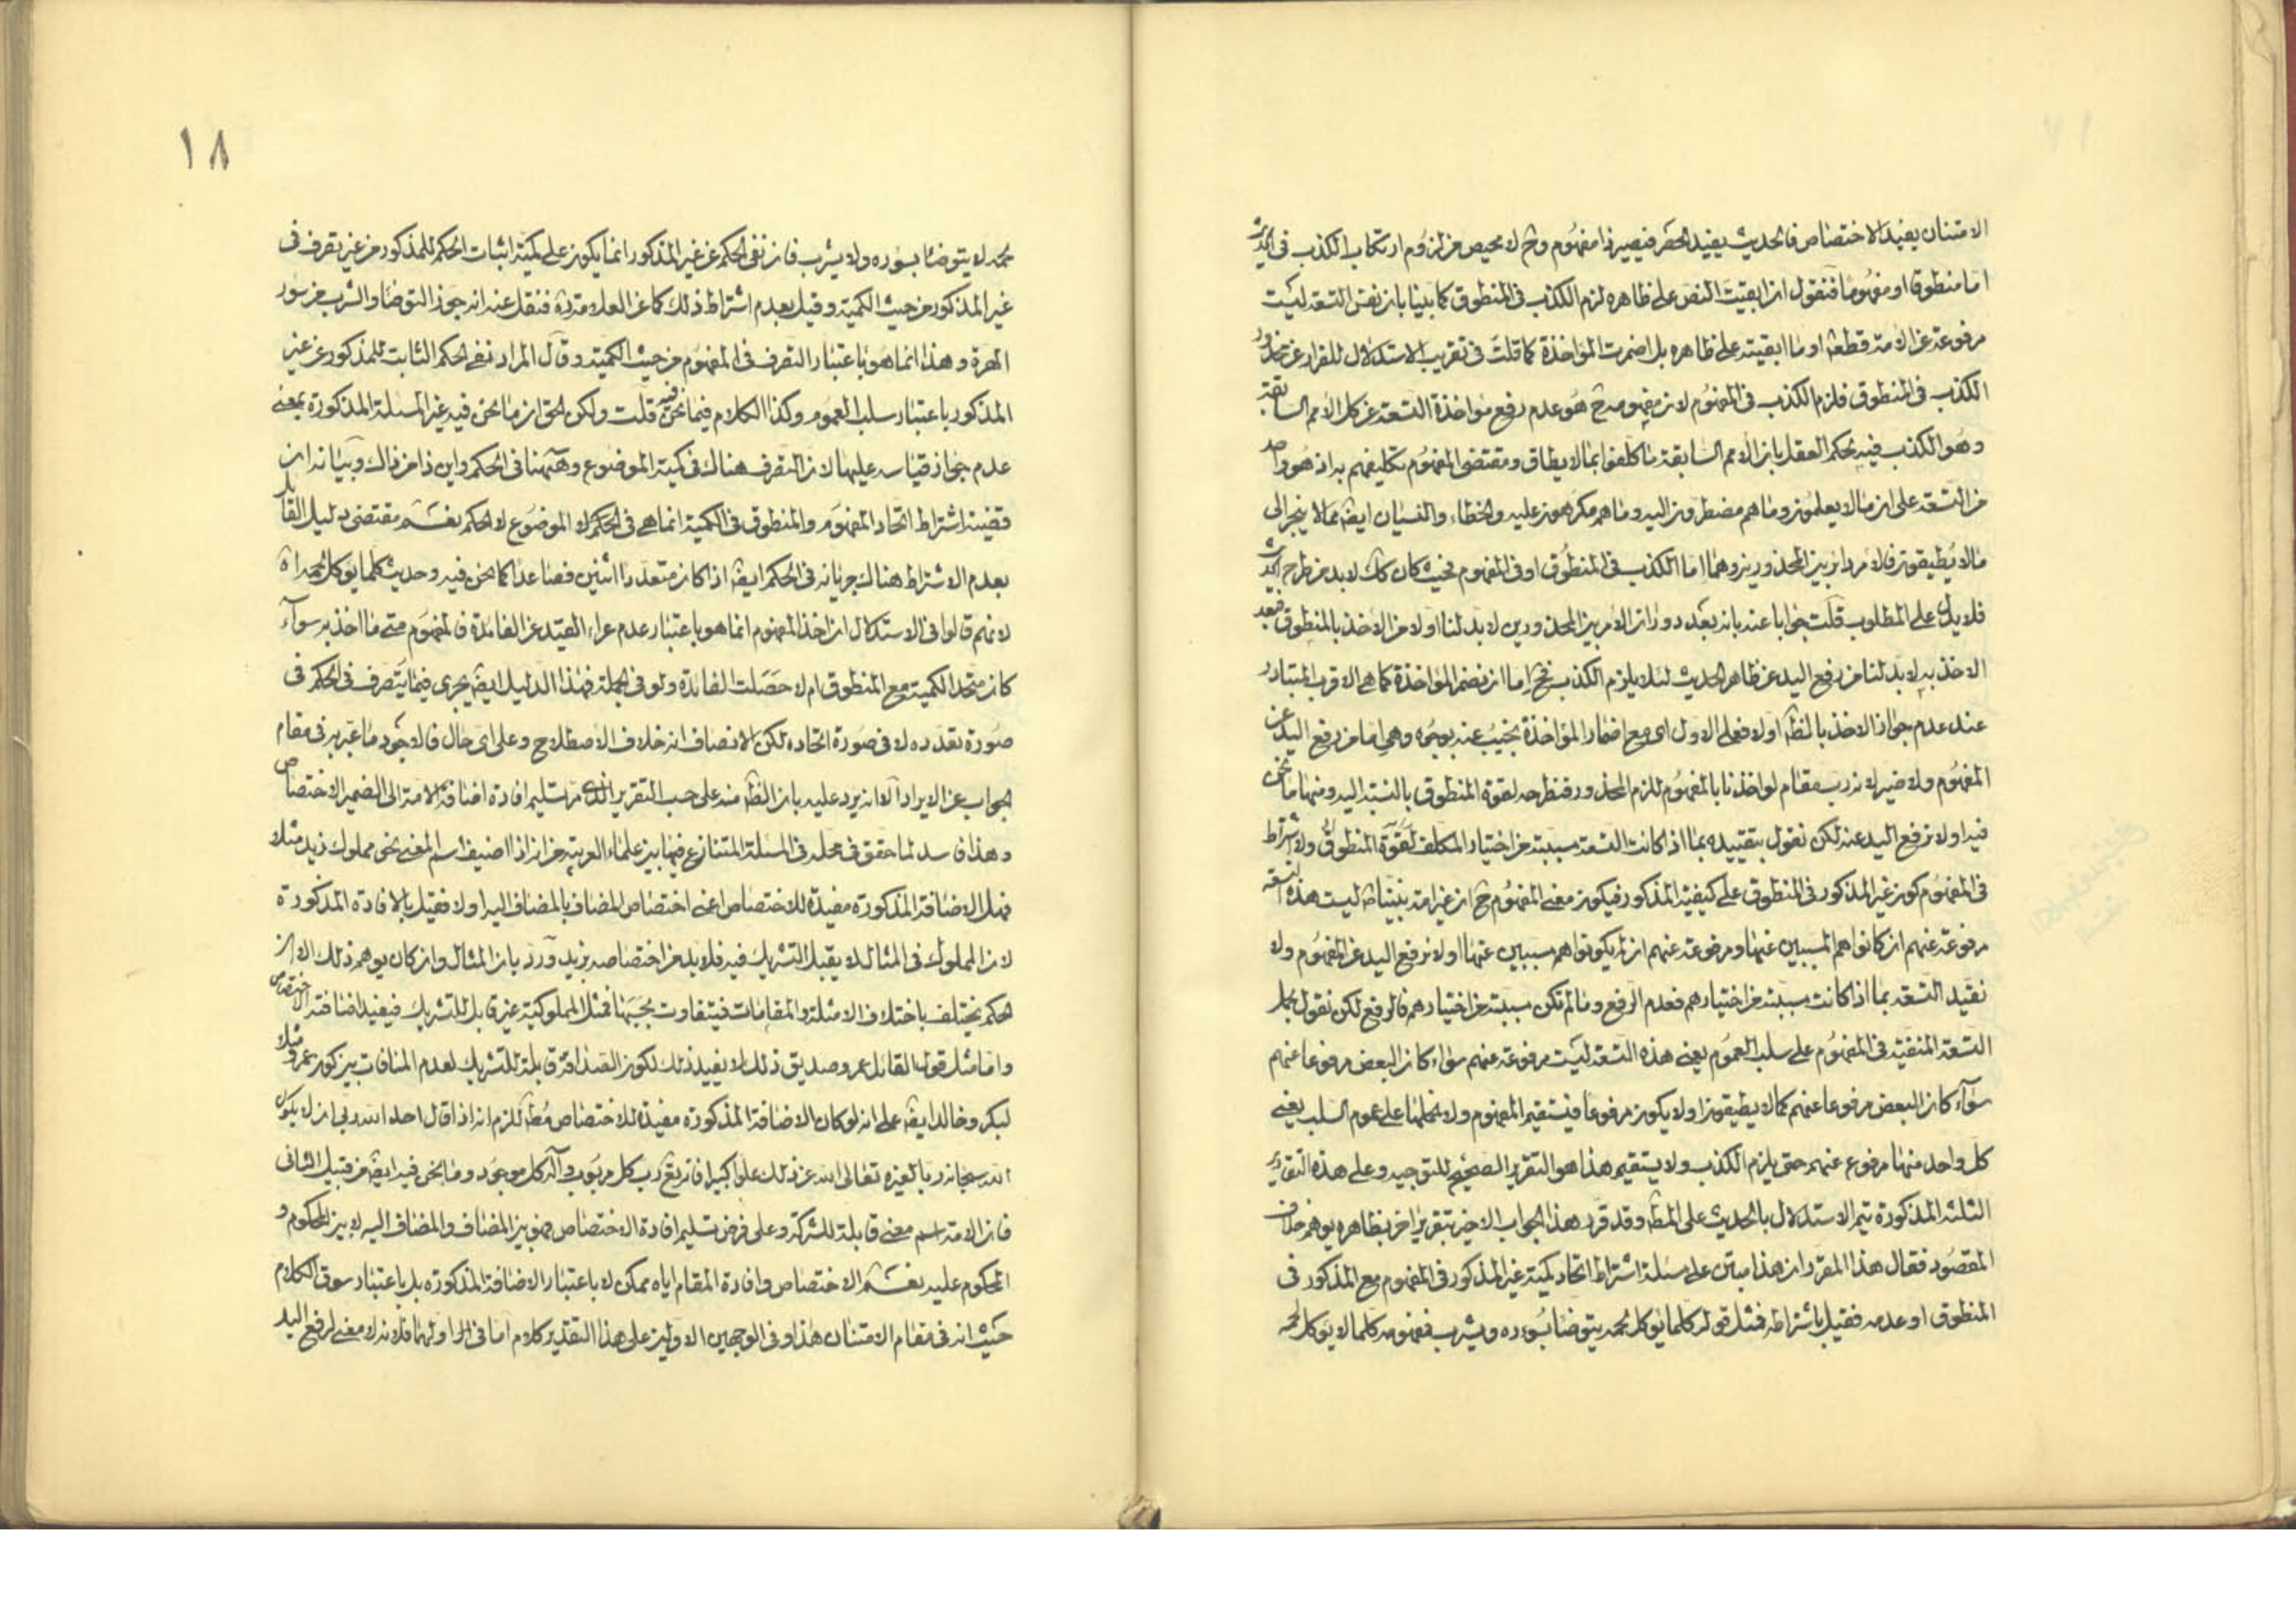 الامتنان يفيد الاختصاص فالحديث يفيد الحصر فيصير ذا مفهوم وح لا محيص من لزوم ارتكاب الكذب فى الحديث
اما منطوقا او مفهوما فنقول ان ابقيت النص على ظاهره لزم الكذب فى المنطوق كما بينا بان نفس التسعة ليست
مرفوعة عن الامة قطعا او ما ابقيته على ظاهره بل اضمرت المؤاخذة كما قلت فى تقريب الاستدلال للفرار عن محذور
الكذب فى المنطوق فلزم الكذب فى المفهوم لان مفهومه ح هو عدم رفع مؤاخذة التسعة عن كل الامم السابقة
وهو الكذب فيه بحكم العقل بان الامم السابقة ما كلفوا بما لا يطاق ومقتضى المفهوم تكليفهم به اذ هو واحد
من التسعة على ان ما لا يعلمون وما هم مضطرون اليه وما هم مكرهون عليه والخطاء والنسيان ايضا مما لا ينجر الى
ما لا يطيقون فالامر دائر بين المحذورين وهما اما الكذب فى المنطوق او فى المفهوم فحيث كان كك لابد من طرح الحديث
فلا يدل على المطلوب قلت جوابا عنه بانه بعد دوران الامر بين المحذورين لابد لنا اولا من الاخذ بالمنطوق فبعد
الاخذ به لابد لنا من رفع اليد عن ظاهر الحديث لئلا يلزم الكذب فح اما ان نضمر المؤاخذة كما هى الاقرب المتبادر
عند عدم جواز الاخذ بالظ اولا فعلى الاول اى مع اضمار المؤاخذة نجيب عنه بوجوه وهى اما من رفع اليد عن
المفهوم ولا ضير لانه رب مقام لو اخذنا بالمفهوم للزم المحذور فنطرحه لقوة المنطوق بالنسبة اليه ومنها ما نحن
فيه اولا نرفع اليد عنه لكن نقول بتقييده بما اذا كانت التسعة مسببة من اختيار المكلف لقوة المنطوق ولاشتراط
فى المفهوم كون غير المذكور فى المنطوق على كيفية المذكور فيكون معنى المفهوم ح ان غير امة نبينا ص ليست هذه التسعة
مرفوعة عنهم ان كانوا هم المسببين عنها ومرفوعة عنهم ان لم يكونوا هم مسببين عنها اولا نرفع اليد عن المفهوم ولا
نقيد التسعة بما اذا كانت مسببة من اختيارهم فعدم الرفع وما لم تكن مسببة من اختيارهم فالرفع لكن نقول بحمل
التسعة المنفية فى المفهوم على سلب العموم يعنى هذه التسعة ليست مرفوعة عنهم سواء كان البعض مرفوعا عنهم
سواء كان البعض مرفوعا عنهم كما لا يطيقون اولا يكون مرفوعا فيستقيم المفهوم ولا نحملها على عموم السلب يعنى
كل واحد منها مرفوع عنهم حتى يلزم الكذب ولا يستقيم هذا هو التقرير الصحيح للتوجيه وعلى هذه التقادير
الثلثة المذكورة يتم الاستدلال بالحديث على المط وقد قرر هذا الجواب الاخير بتقرير اخر بظاهره يوهم خلاف
المقصود فقال هذا المقرر ان هذا مبتن على مسئلة اشتراط اتحاد كمية غير المذكور فى المفهوم مع المذكور فى
المنطوق او عدمه فقيل باشتراطه فمثل قوله كلما يؤكل لحمه يتوضا بسؤره ويشرب فمفهومه كلما لا يؤكل لحمه
١٨
لحمه لا يتوضا بسؤره ولا يشرب فان نفى الحكم عن غير المذكور انما يكون على كمية اثبات الحكم للمذكور من غير تصرف فى
غير المذكور من حيث الكمية وقيل بعدم اشتراط ذلك كما عن العلامة ره فنقل عنه انه جوز التوضا والشرب من سؤر
الهرة وهذا انما هو باعتبار التصرف فى المفهوم من حيث الكمية وقال المراد نفى الحكم الثابت للمذكور عن غير
المذكور باعتبار سلب العموم وكذا الكلام فيما نحن فيه قلت ولكن الحق ان ما نحن فيه غير المسئلة المذكورة بمعنى
عدم جواز قياسه عليها لان التصرف هناك فى كمية الموضوع وههنا فى الحكم واين ذا من ذاك وبيانه ان
قضية اشتراط اتحاد المفهوم والمنطوق فى الكمية انما هى فى الحكم لا الموضوع لا الحكم نعم مقتضى دليل القائل
بعدم الاشتراط هناك جريانه فى الحكم ايضا اذا كان متعددا اثنين فصاعدا كما نحن فيه وحديث كلما يؤكل لحمه اه
لانهم قالوا فى الاستدلال ان اخذ المفهوم انما هو باعتبار عدم عراء القيد عن الفائدة فالمفهوم متى ما اخذ به سواء
كان متحد الكمية مع المنطوق ام لا حصلت الفائدة ولو فى الجملة فهذا الدليل ايضا يجرى فيما يتصرف فى الحكم فى
صورة تعدده لا فى صورة اتحاده لكن الانصاف انه خلاف الاصطلاح وعلى اى حال فالاجود ما عبر به فى مقام
الجواب عن الايراد الا انه يرد عليه بان الظ منه على حسب التقرير الذى مر تسليم افادة اضافة الامة الى الضمير الاختصاص
وهذا فاسد لما حقق فى محله فى المسئلة المتنازع فيها بين علماء العربية من ان اذا اضيف اسم المعنى نحو مملوك زيد مثلا
فهل الاضافة المذكورة مفيدة للاختصاص اعنى اختصاص المضاف بالمضاف اليه اولا فقيل بالافادة المذكورة
لان المملوك فى المثال لا يقبل التشريك فيه فلابد من اختصاصه بزيد ورد بان المثال وان كان يوهم ذلك الا ان
الحكم يختلف باختلاف الامثلة والمقامات فيتفاوت بحسبها فمثل المملوكية غير قابل للتشريك فيفيد اضافته الاختصاص
واما مثل قول القائل عمرو صديق ذلك لا يفيد ذلك لكون الصداقة قابلة للتشريك لعدم المنافات بين كون عمرو مثلا
لبكر وخالد ايضا على انه لو كان الاضافة المذكورة مفيدة للاختصاص مط للزم انه اذا قال احد الله ربى ان لا يكون
الله سبحانه ربا لغيره تعالى الله عن ذلك علوا كبيرا فانه تع رب كل مربوب واله كل موجود وما نحن فيه ايضا من قبيل الثانى
فان الامة اسم معنى قابلة للشركة وعلى فرض تسليم افادة الاختصاص فهو بين المضاف والمضاف اليه لا بين المحكوم و
المحكوم عليه نعم الاختصاص وافادة المقام اياه ممكن لا باعتبار الاضافة المذكورة بل باعتبار سوق الكلام
حيث انه فى مقام الامتنان هذا وفى الوجهين الاولين على هذا التقدير كلام اما فى اولهما فلانه لا معنى لرفع اليد